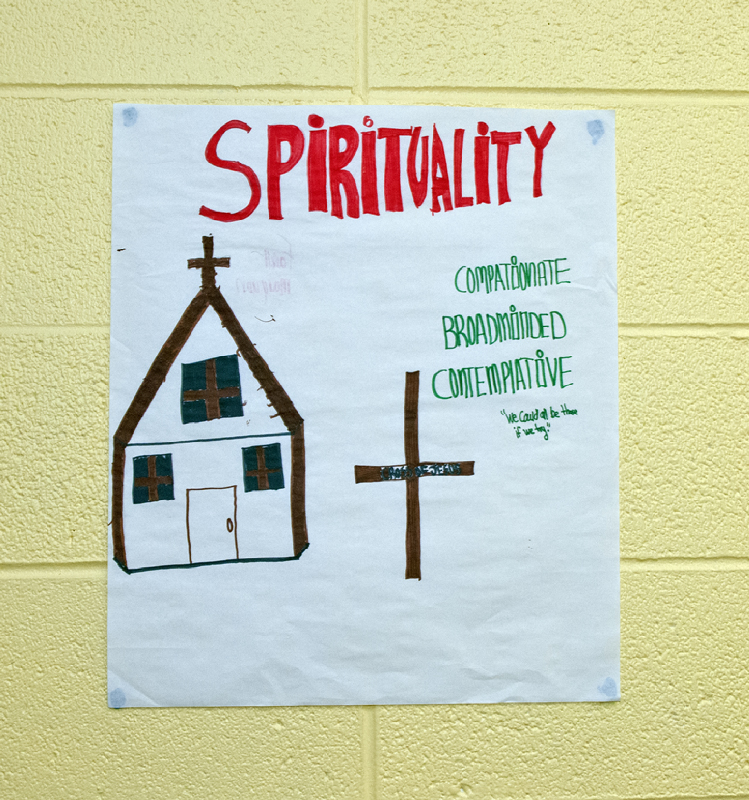 SPIRITUALITY
COMPATIONATE
BROADMINDED
CONTEMPLATIVE
"We Could all be these
if we try."